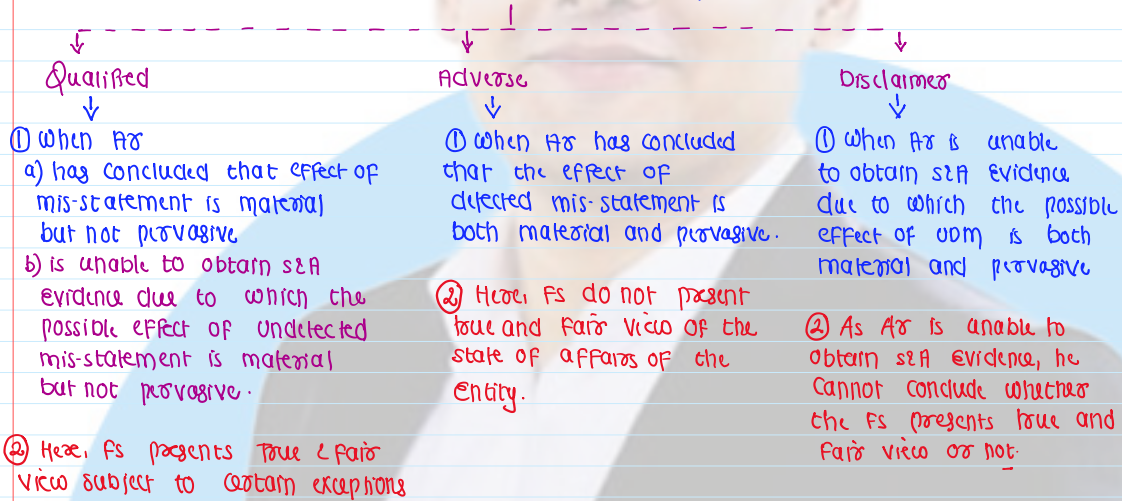 Qualified
① When Ar
a) has concluded that effect of
mis-statement is material
but not pervasive
b) is unable to obtain S&A
evidence due to which the
possible effect of undetected
mis-statement is material
but not pervasive.
② Here, FS presents True & Fair
view subject to certain exceptions
Adverse
① When Ar has concluded
that the effect of
detected mis-statement is
both material and pervasive.
② Here, FS do not present
true and Fair view of the
state of affairs of the
entity.
Disclaimer
① When Ar is unable
to obtain S&A Evidence
due to which the possible
effect of UDM is both
material and pervasive
② As Ar is unable to
obtain S&A Evidence, he
cannot conclude whether
the FS presents true and
Fair view or not.